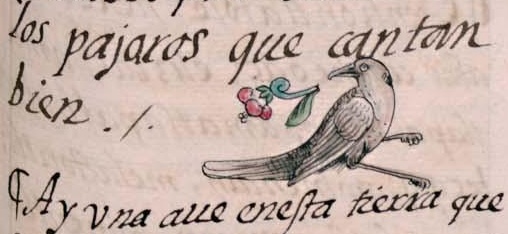 los pajaros que cantan
bien ./.
¶Ay vna aue enesta tierra que